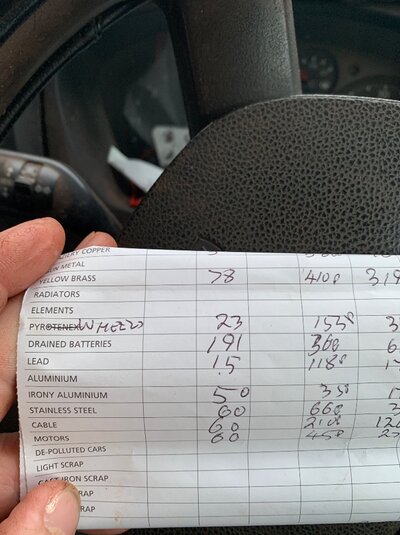 ERY COPPER
UN METAL
YELLOW BRASS 78 4108 319
RADIATORS
ELEMENTS
PYROTENEX WHEELS 23 1538 3
DRAINED BATTERIES 191 360 6
LEAD 15 1180 1
ALUMINIUM
IRONY ALUMINIUM 50 350 1
STAINLESS STEEL 60 660 3
CABLE 60 2100 126
MOTORS 60 450 27
DE-POLLUTED CARS
LIGHT SCRAP
CAST IRON SCRAP
RAP
RAP